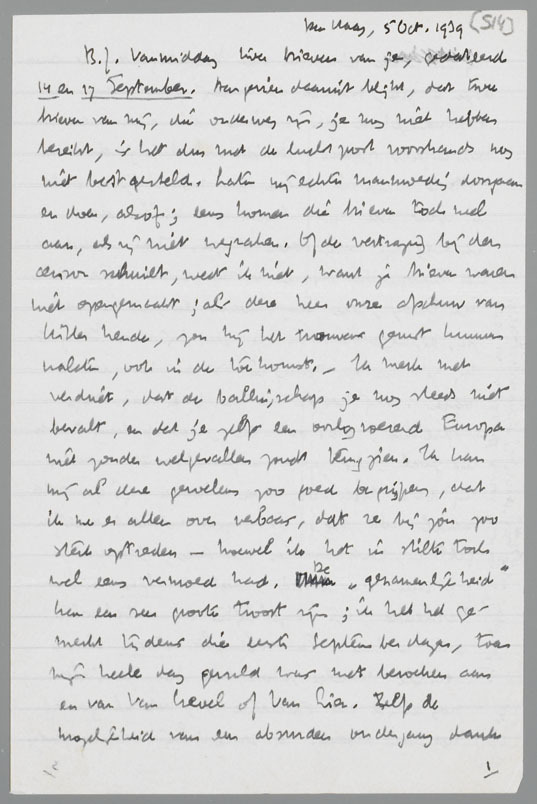 Den Haag, 5 Oct. 1939 [S14]
B.J. Vanmiddag twee brieven van je, gedateerd
14 en 17 September. Aangezien daaruit blijkt, dat twee
brieven van mij, die onderweg zijn, je nog niet hebben
bereikt, is het dus met de luchtpost voorshands nog
niet best gesteld. Laten wij echter manmoedig doorgaan
en doen, alsof; eens komen die brieven toch wel
aan, als zij niet vergaan. Of de vertraging bij den
censor schuilt, weet ik niet, want je brieven waren
niet opengemaakt; als deze heer onze afschuw van
Hitler kende, zou hij het trouwens gerust kunnen
nalaten, ook in de toekomst. – Ik merk met
verdriet, dat de ballingschap je nog steeds niet
bevalt, en dat je zelfs een oorlogvoerend Europa
niet zonder welgevallen zoudt terugzien. Ik kan
mij al deze gevoelens zoo goed begrijpen, dat
ik me er alleen over verbaas, dat ze bij jou zoo
sterk optreden – hoewel ik het in stilte toch
wel eens vermoed had. De „gezamenlijkheid"
kan een zeer groote troost zijn; ik heb het ge-
merkt tijdens die eerste Septemberdagen, toen
mijn heele dag gevuld was met bezoeken aan
en van Van Crevel of Van Lier. Zelfs de
mogelijkheid van een absurden ondergang dankt
1